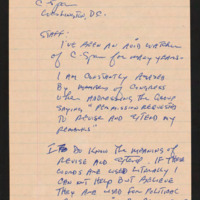 C-Span
Washington, D.C.
STAFF:
I'VE BEEN AN AVID WATCHER
OF C-SPAN FOR MANY YEARS.
I AM CONSTANTLY AMAZED
BY MEMBERS OF CONGRESS
WHEN ADDRESSING THE GROUP
SAYING "PERMISSION REQUESTED
TO REVISE AND EXTEND MY
REMARKS"
I DO KNOW THE MEANING OF
REVISE AND EXTEND. IF THESE
WORDS ARE USED LITERALLY I
CAN NOT HELP BUT BELIEVE
THEY ARE USED FOR POLITICAL